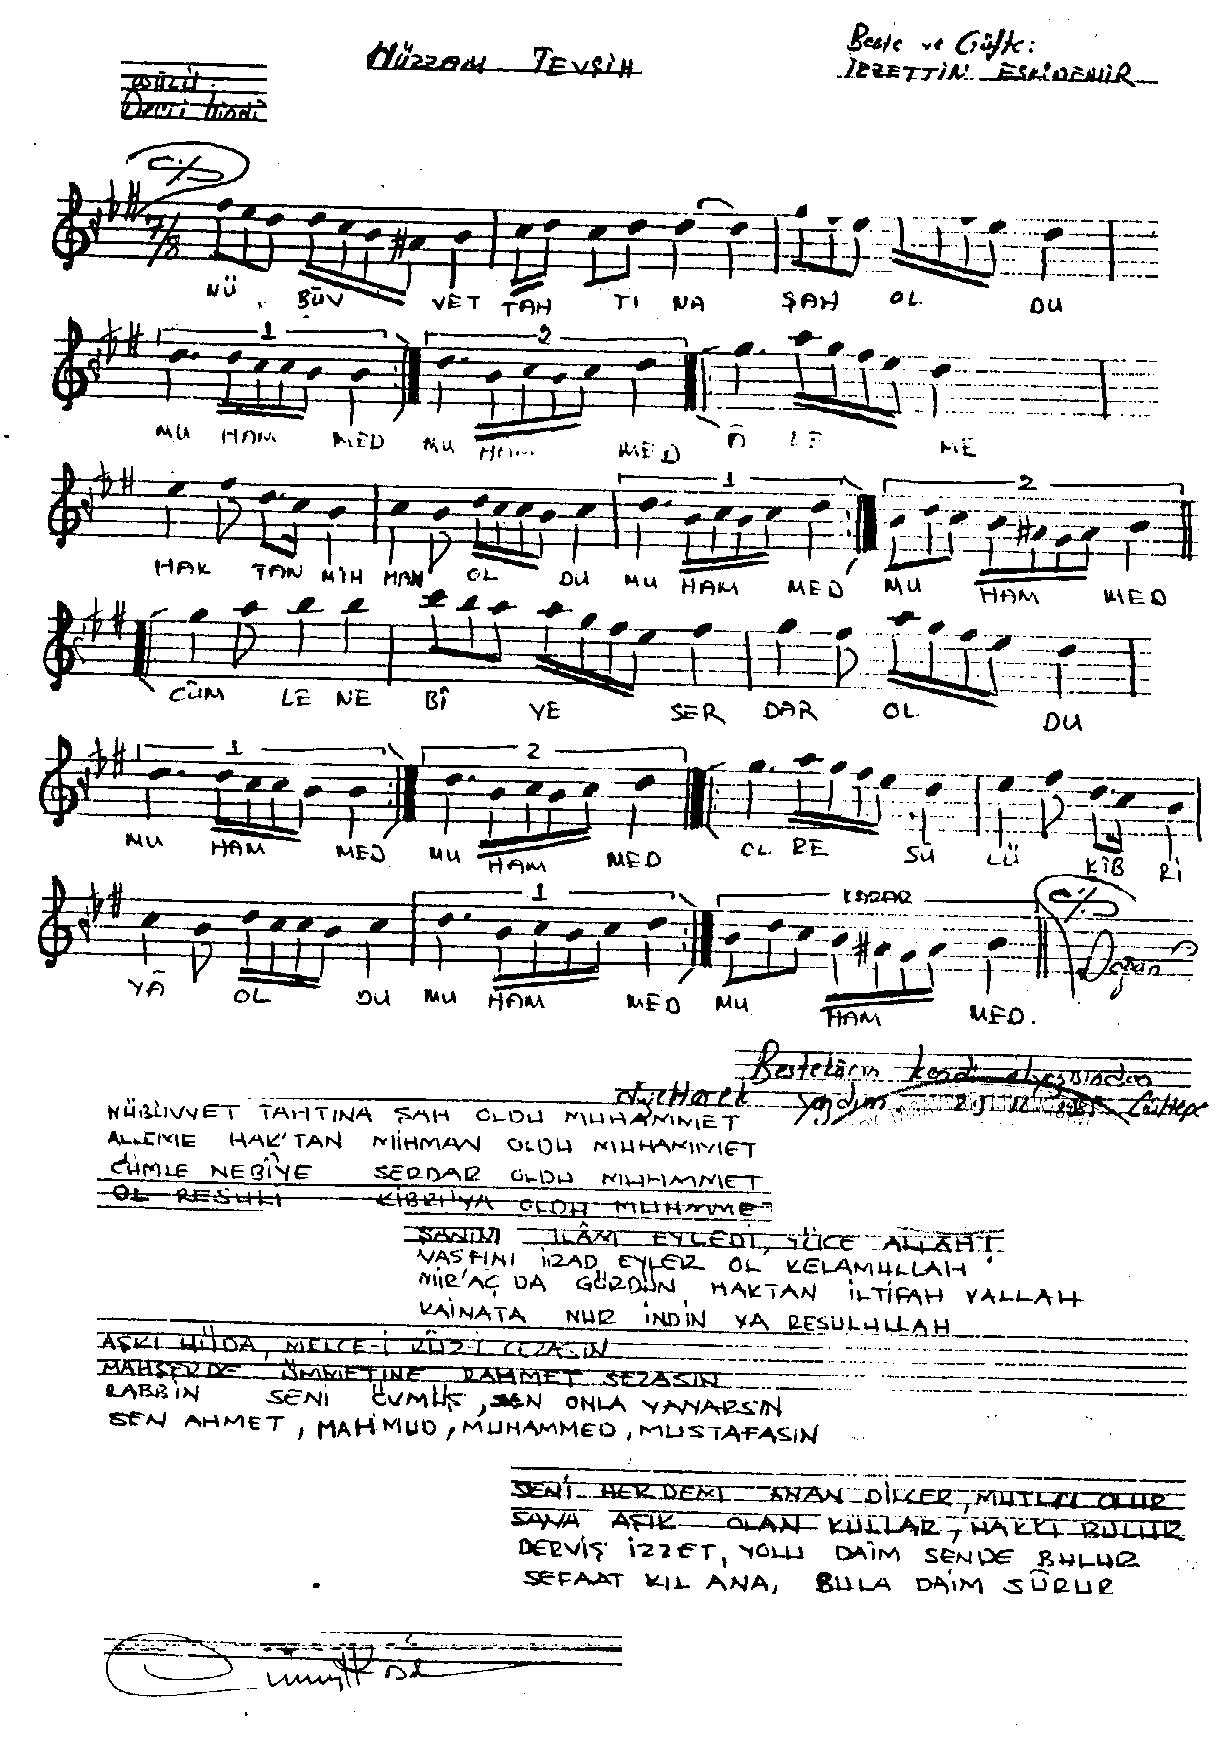 HÜZZAM TEVŞİH
Beste ve Güfte:
İZZETTİN ESKİDEMİR
USÛLÜ:
Devri hindî
7/8
NÜ BÜV VET TAH TI NA ŞAH OL DU
1 2
MU HAM MED MU HAM MED Â LE ME
1 2
HAK TAN MİH MAN OL DU MU HAM MED MU HAM MED
CÜM LE NE BÎ YE SER DAR OL DU
1 2
MU HAM MED MU HAM MED OL RE SU LÜ KİB Rİ
1 KARAR
YÂ OL DU MU HAM MED MU HAM MED.
Bestekârın kendi
yazdım.
NÜBÜVVET TAHTINA ŞAH OLDU MUHAMMET
ALLEME HAK'TAN MİHMAN OLDU MUHAMMET
CÜMLE NEBÎYE SERDAR OLDU MUHAMMET
OL RESULİ KİBRİYA OLDU MUHAMMET
ŞANINI İLÂM EYLEDİ, YÜCE ALLAH!
VASFINI İRAD EYLER OL KELAMULLAH
MİR'AÇ DA GÖRDÜN HAKTAN İLTİFAH VALLAH
KAİNATA NUR İNDİN YA RESULULLAH
AŞKI HÜDA, MELCE-İ RÛZ-İ CEZASIN
MAHŞERDE ÜMMETİNE RAHMET SEZASIN
RABBİN SENİ ÖVMÜŞ, SEN ONLA YANARSIN
SEN AHMET, MAHMUD, MUHAMMED, MUSTAFASIN
SENİ HERDEM ANAN DİLLER, MUTLU OLUR
SANA AŞIK OLAN KULLAR, HAKKI BULUR
DERVİŞ İZZET, YOLU DAİM SENDE BULUR
ŞEFAAT KIL ANA, BULA DAİM SÜRUR